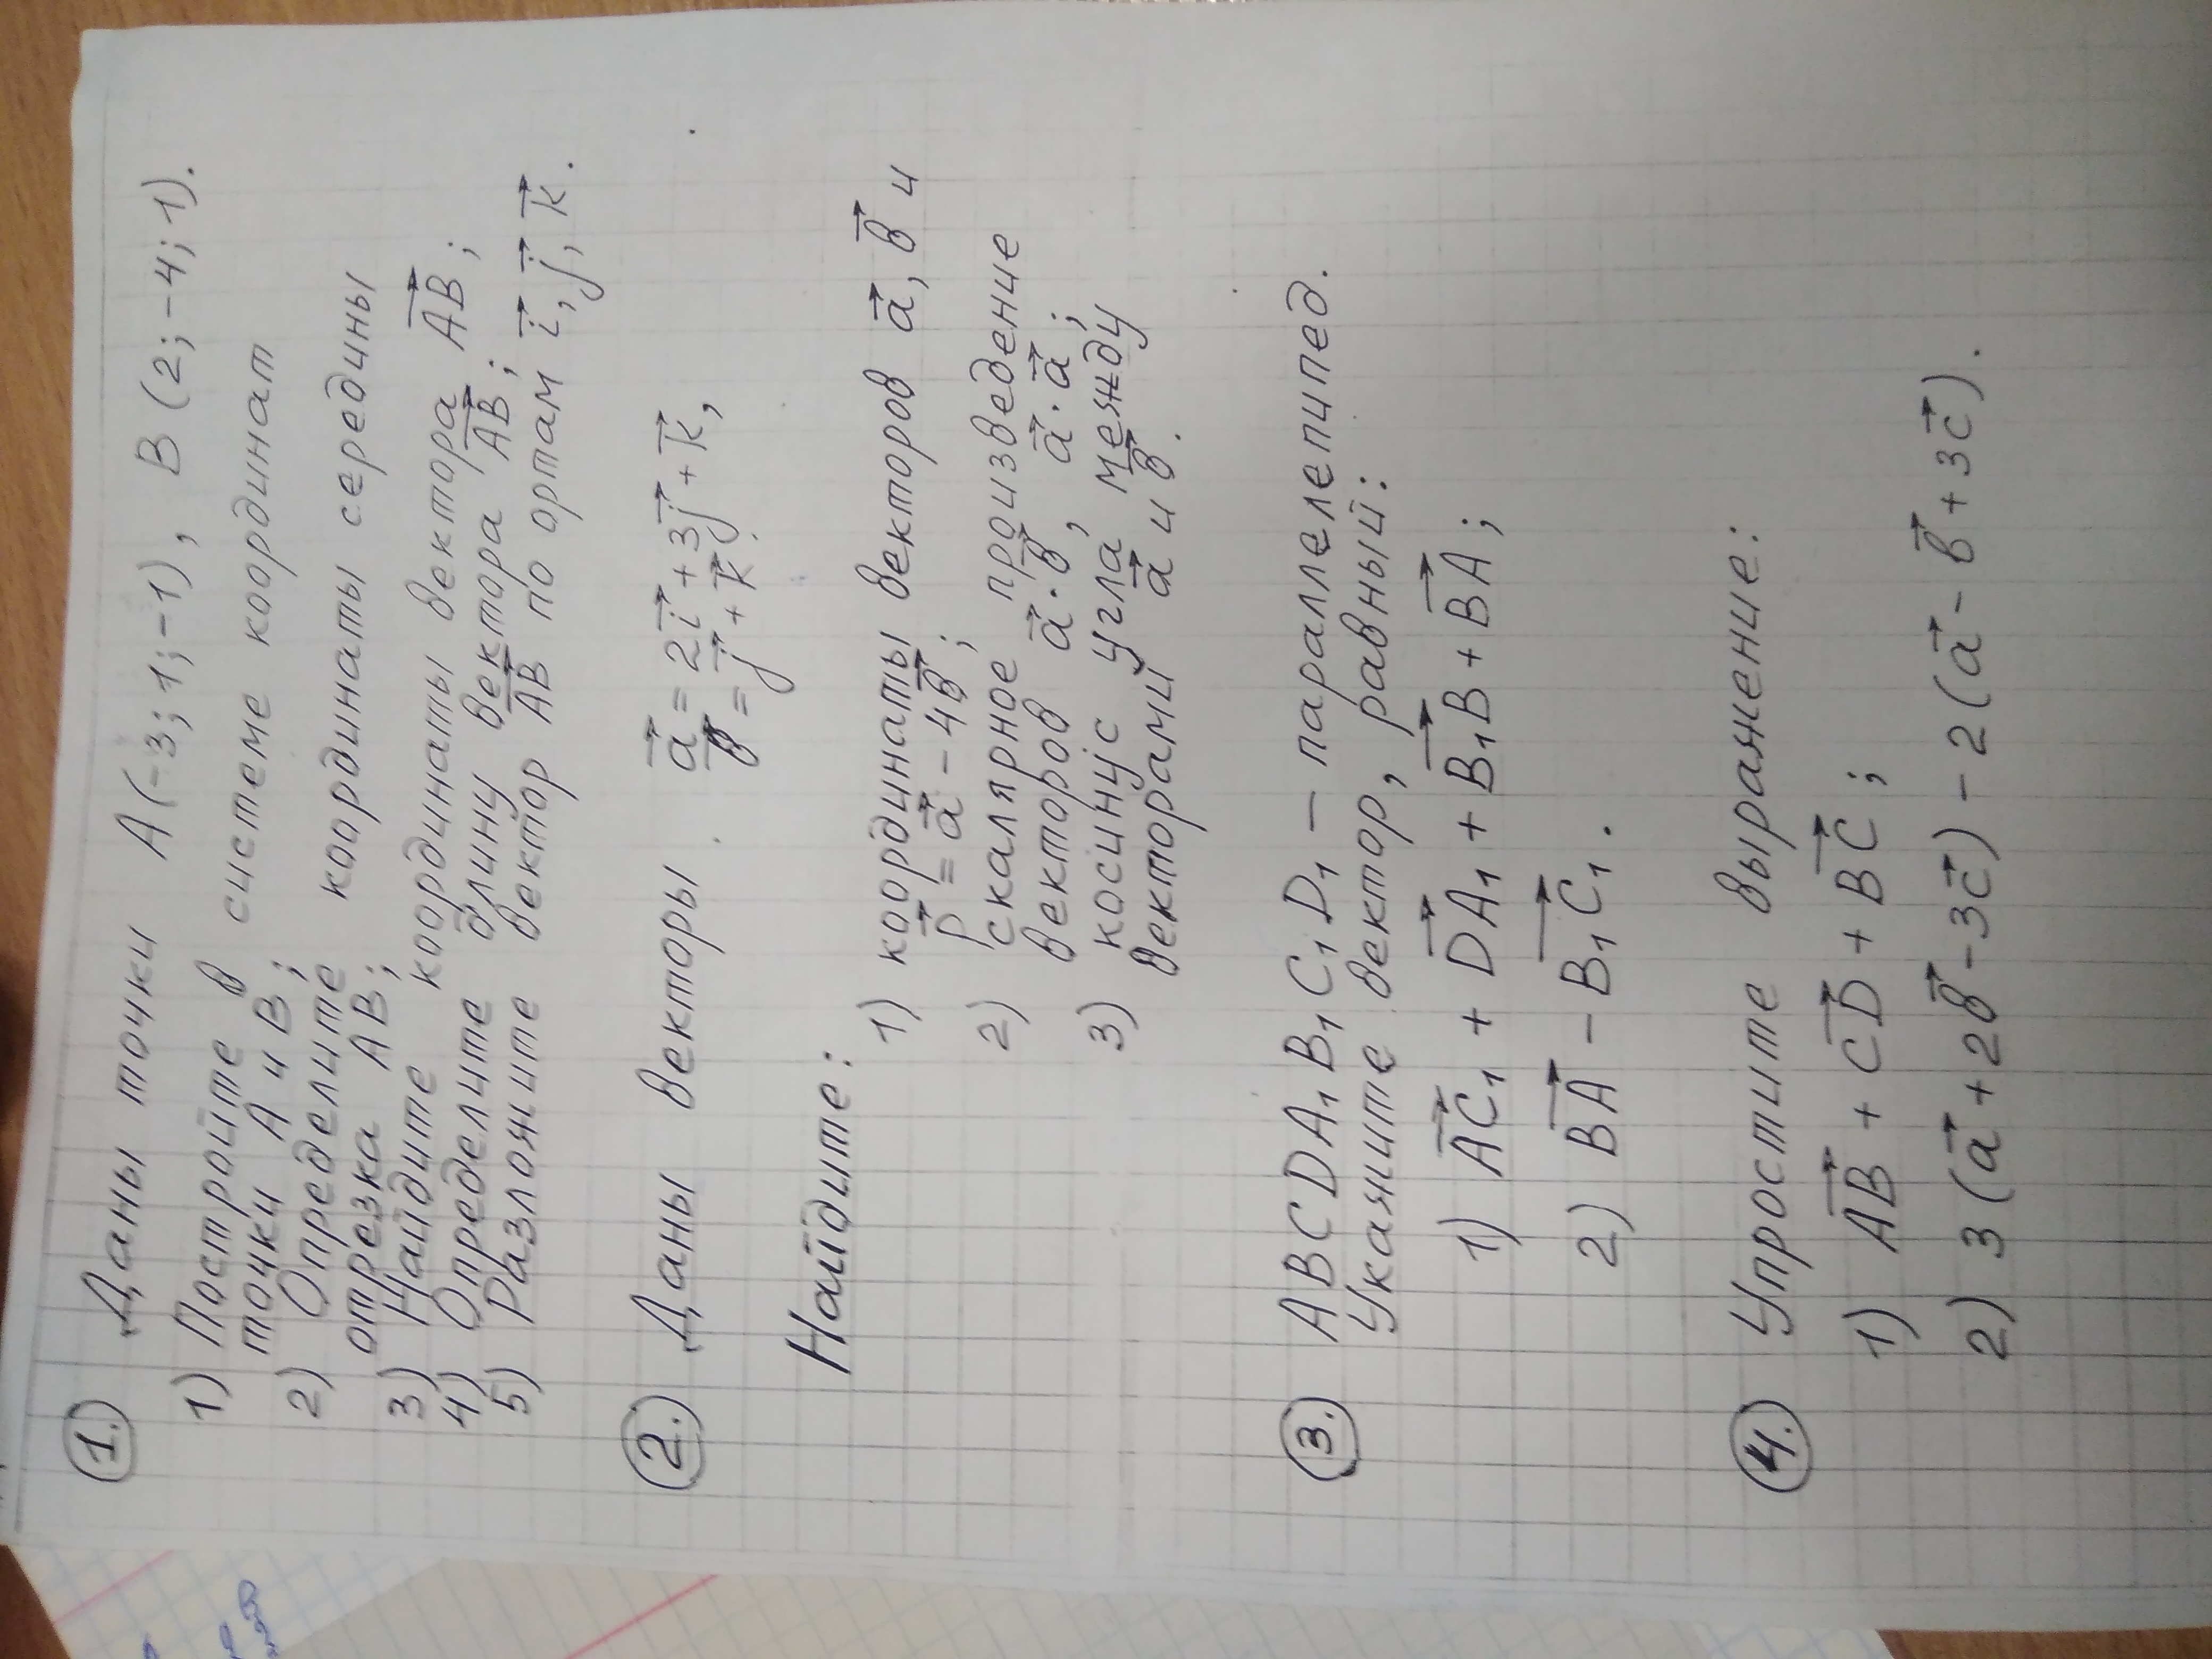 1. Даны точки A(-3; 1; -1), B(2; -4; 1).
1) Постройте в системе координат
точки A и B;
2) Определите координаты середины
отрезка AB;
3) Найдите координаты вектора AB⃗;
4) Определите длину вектора AB⃗;
5) Разложите вектор AB⃗ по ортам i⃗, j⃗, k⃗.
2. Даны векторы a⃗ = 2i⃗ + 3j⃗ + k⃗,
в⃗ = j⃗ + k⃗.
Найдите:
1) координаты векторов a⃗, в⃗ и
p⃗ = a⃗ - 4в⃗;
2) скалярное произведение
векторов a⃗ · в⃗, a⃗ · a⃗;
3) косинус угла между
векторами a⃗ и в⃗.
3. ABCDA₁B₁C₁D₁ – параллелепипед.
Укажите вектор, равный:
1) AC₁⃗ + DA₁⃗ + B₁B⃗ + BA⃗;
2) BA⃗ - B₁C₁⃗.
4. Упростите выражение:
1) AB⃗ + CD⃗ + BC⃗;
2) 3(a⃗ + 2в⃗ - 3c⃗) - 2(a⃗ - в⃗ + 3c⃗).